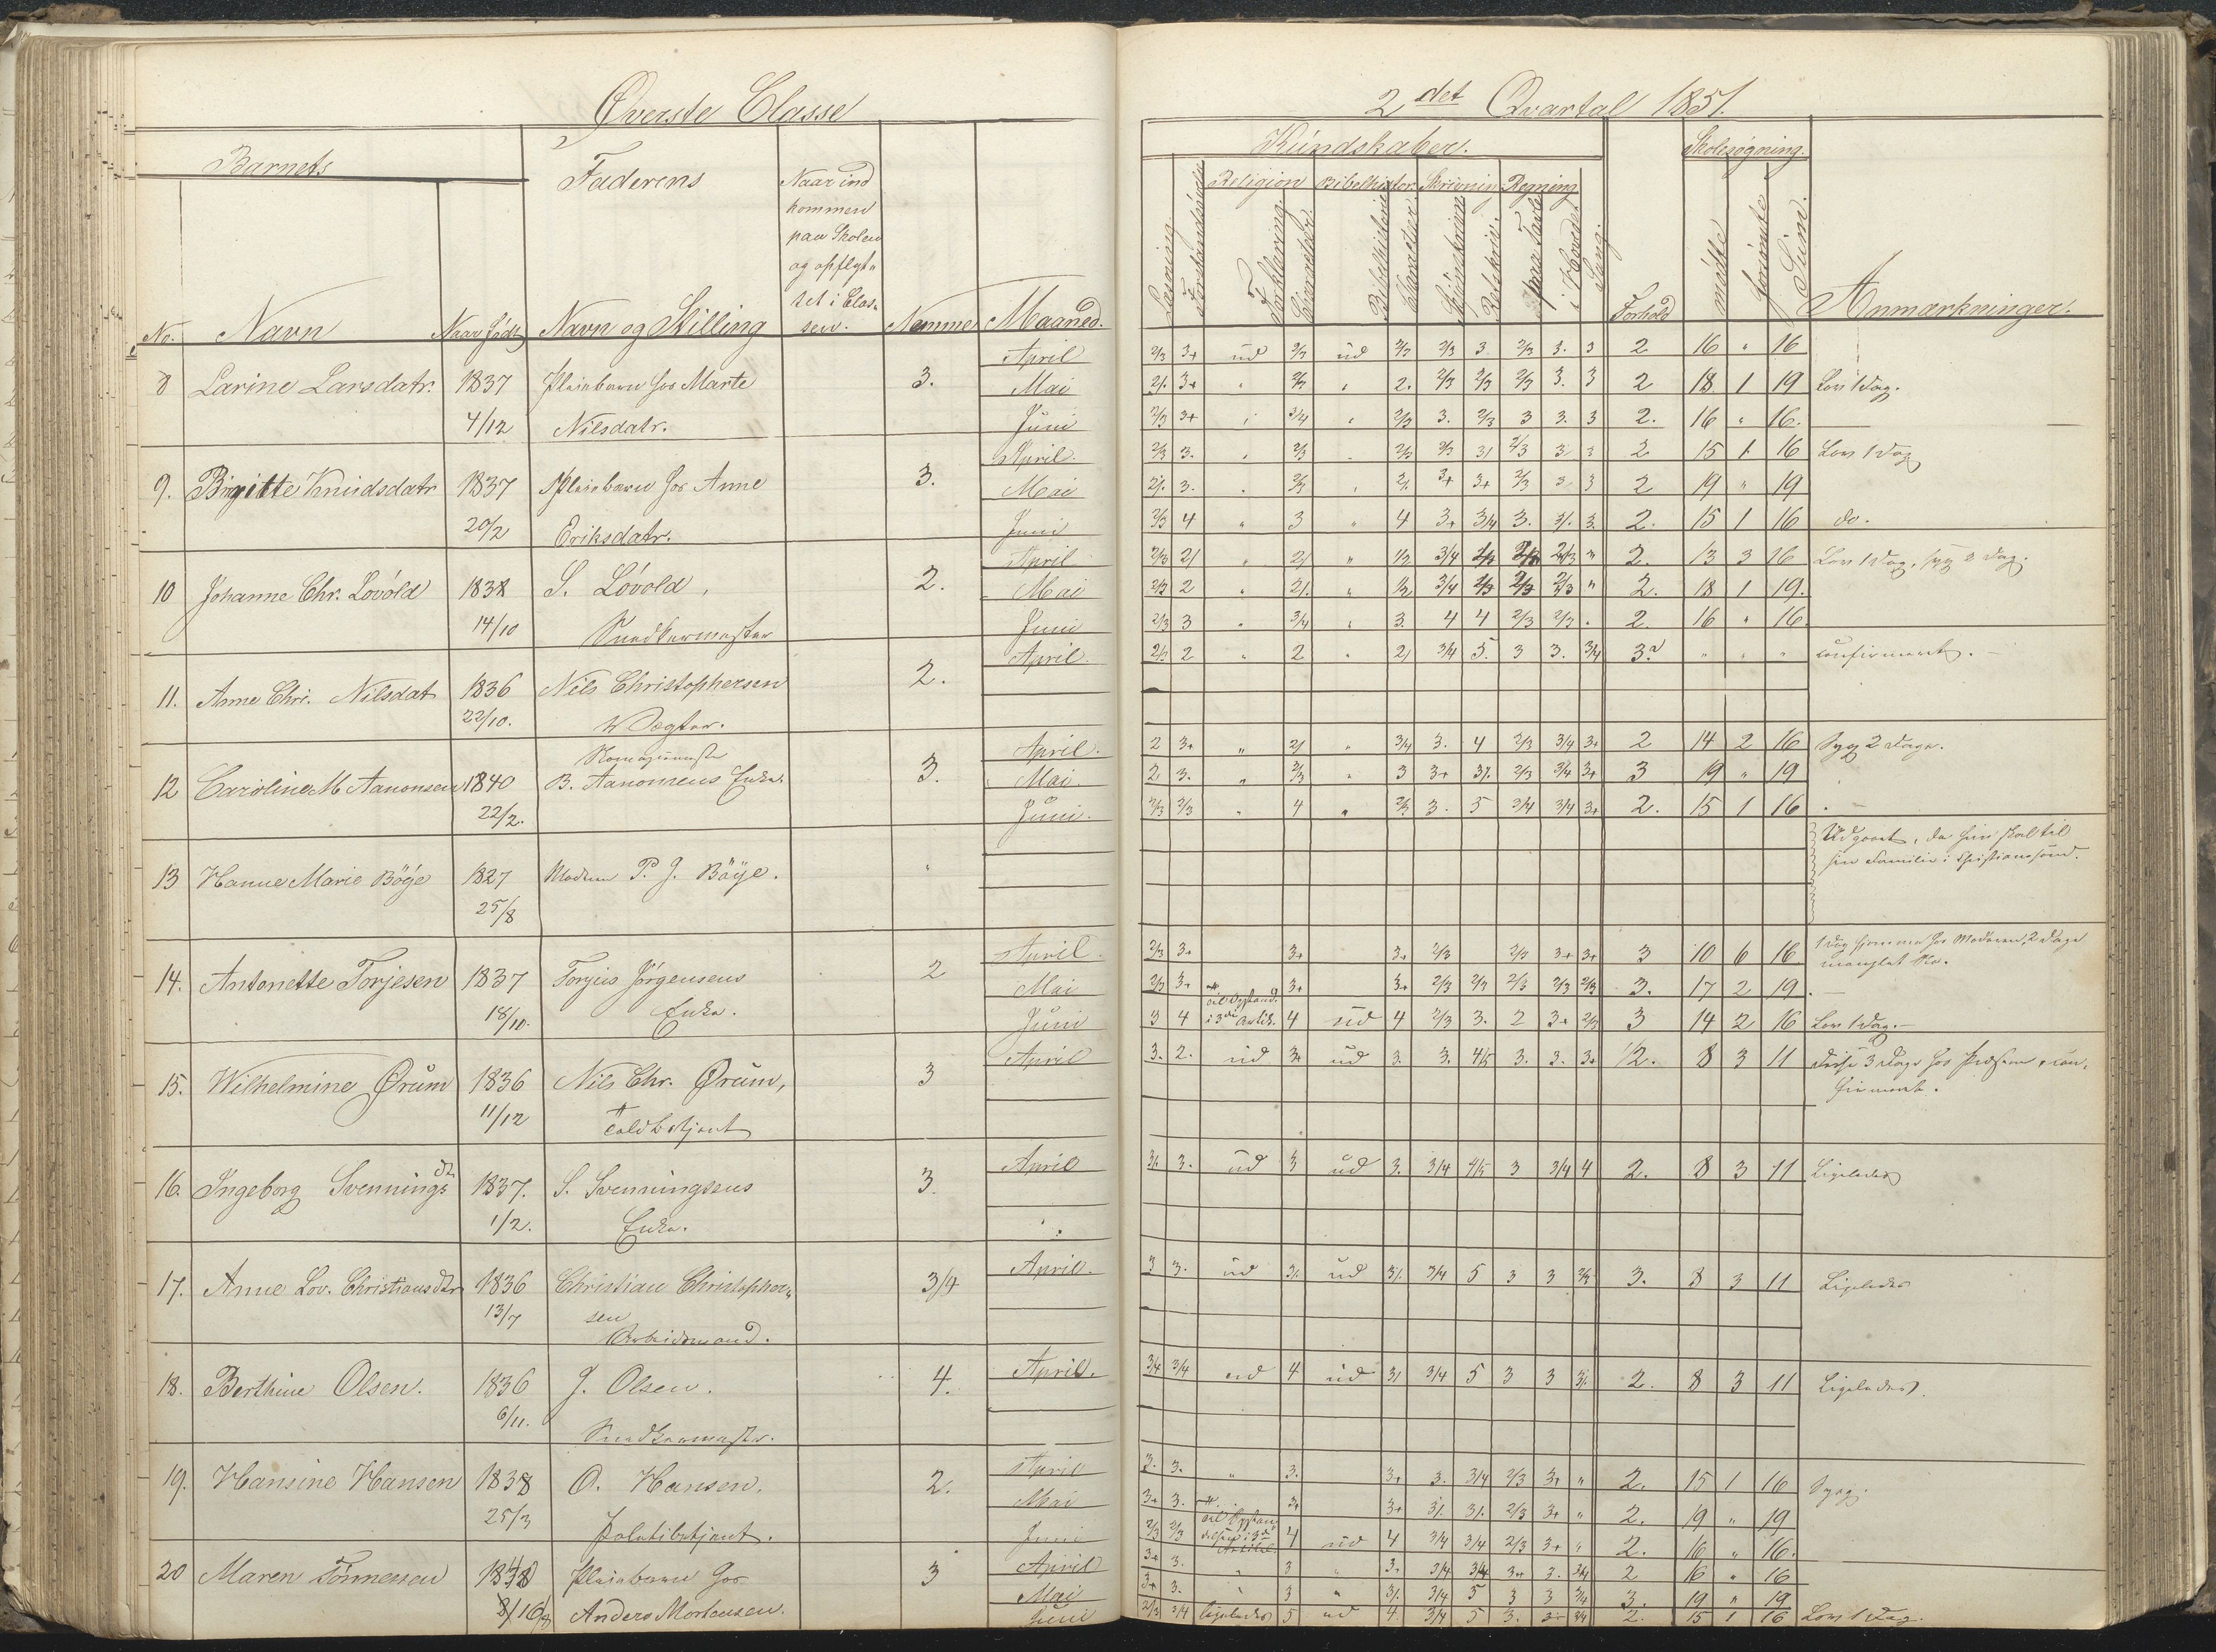 Øverste Classe
Barnets
Faderens
Naar ind
kommen
paa Skolen
og opflyt„
tet i Clas„
sen.
No. Navn Naar født Navn og Stilling Nemme Maaned.
8 Larine Larsdatr. 1837 Pleiebarn hos Marte 3. April
Mai
4/12 Nilsdatr. Juni
9. Birgitte Knudsdatr 1837 Pleiebarn hos Anne 3. April.
Mai
20/2 Eriksdatr. Juni
10 Johanne Chr. Lovold 1838 S. Lovold, 2. April
Mai
14/10 Snedkermester Juni
11. Anne Chri. Nilsdat 1836 Nils Christophersen 2. April.
22/10. Vægter.
12 Caroline M Aanonsen 1840 B. Aanonsens Enke. 3. April.
Mai.
22/2. Juni.
13 Hanne Marie Böÿe 1827 Madam P. J. Böÿe.
25/8
14. Antonette Torjesen 1837 Torjus Jörgensens 2 April.
Mai
18/10. Enke. Juni
15. Wilhelmine Ørum 1836 Nils Chr. Ørum, 3 April
11/12 Toldbetjent
16. Ingeborg Svennings dtr 1837. S. Svenningsens 3. April
1/2. Enke.
17. Anne Lov. Christiansdtr 1836 Christian Christopher„ 3/4 April.
13/7 sen
Arbeidsmand.
18. Berthine Olsen. 1836 J. Olsen. 4. April.
6/11. Snedkermester.
19. Hansine Hansen 1838 O. Hansen. 2. April
Mai
25/3 Politibetjent. Juni
20 Maren Tönnessen Pleiebarn hos 3 April
Mai
Anders Mortensen. Juni
2det Qvartal 1851.
Kundskaber. Skolesøgning.
Religion Bibelhistor. Skrivnin Regning
Læsning. Forstandsøvelse Forklaring. Bibelhistorie Skjönskrivn Retskriv. paa Tavle i Hovedet Sang. Forhold mødte forsømte Sum. Anmærkninger.
2/3 3+ ud 2/3 ud 2/3 2/3 3 2/3 3. 3 2 16 „ 16
2/. 3+ „ 2/3 „ 2. 2/3 2/3 2/3 3. 3 2 18 1 19 Lov 1 Dag.
2/3 3+ „ 3/4 „ 2/3 3. 2/3 3 3. 3 2. 16 „ 16.
2/3 3. „ 2/3 „ 2/3 2/3 3/ 2/3 3 3 2 15 1 16 Lov 1 Dag
2/. 3. „ 2/3 „ 2/. 3+ 3+ 2/3 3 3 2 19 „ 19
2/3 4 „ 3 „ 4 3+ 3/4 3. 3/. 3. 2. 15 1 16 do.
2/3 2/ „ 2/ „ 1/2 3/4 2/3 2/3 2/3 „ 2. 13 3 16 Lov 1 Dag, syg 2 Dag.
2/3 2 „ 2/. „ 1/2 3/4 2/3 2/3 2/3 „ 2. 18 1 19.
2/3 3 „ 3/4 „ 3 4 4 2/3 2/3 „ 2. 16 „ 16.
2/3 2 „ 2 „ 2/ 3/4 5. 3 3. 3/4 „ „ „ confirmeret.
2 3+ „ 2/ „ 3/4 3. 4 2/3 3/4 3+ 2 14 2 16 Syg 2 Dage.
2. 3. „ 2/3 „ 3 3+ 3/. 2/3 3/4 3+ 3 19 „ 19
2/3 2/3 „ 4 „ 2/3 3. 5 3/4 3/4 3+ 2. 15 1 16
Udgaaet, da hun skal til
sin Familie i Christianssund.
2/3 3+ 3+ 3+ 2/3 2/3 3+ 3+ 3 10 6 16 1 Dag hjemme hos Moderen, 2 Dage
manglet Sko.
2/3 3+ 3+ 3+ 2/3 2/3 2/3 2/3 2/3 3. 17 2 19
3 4 i 3die Artik. 4 ud 4 2/3 3. 2 3+ 2/3 3 14 2 16 Lov 1 Dag.
3. 2. ud 3+ ud 3. 3. 4/5 3. 3. 3+ 1/2. 8 3 11 disse 3 Dage hos Præsten, con„
firmeret.
3/. 3. ud 3 ud 3. 3/4 4/5 3 3/4 4 2. 8 3 11 Ligeledes
3 3. ud 3/. ud 3/. 3/4 5 3 3 2/3 3. 8 3 11 Ligeledes
3/4 3/4 ud 4 ud 3/ 3/4 5 3 3 3/. 2. 8 3 11 Ligeledes.
3. 3. „ 3. 3+ 3. 3/4 2/3 3+ „ 2. 15 1 16 Syg.
3+ 3. 3+ 3+ 3/. 3/. 2/3 3+ „ 2. 19 „ 19
2/3 2/3 4 ud 4 3/4 3/4 2/3 3+ „ 2. 16 „ 16.
3+ 3. „ 3 „ 3+ 3/4 3/4 3+ 3. 3/4 2 16 „ 16
3+ 3. „ 3 „ 3/. 3/4 5 3 3 3/4 3. 19 „ 19
2/3 3/4 Ligeledes 5 ud 4 3/4 5 3. 3 3/4 2. 15 1 16 Lov 1 Dag.